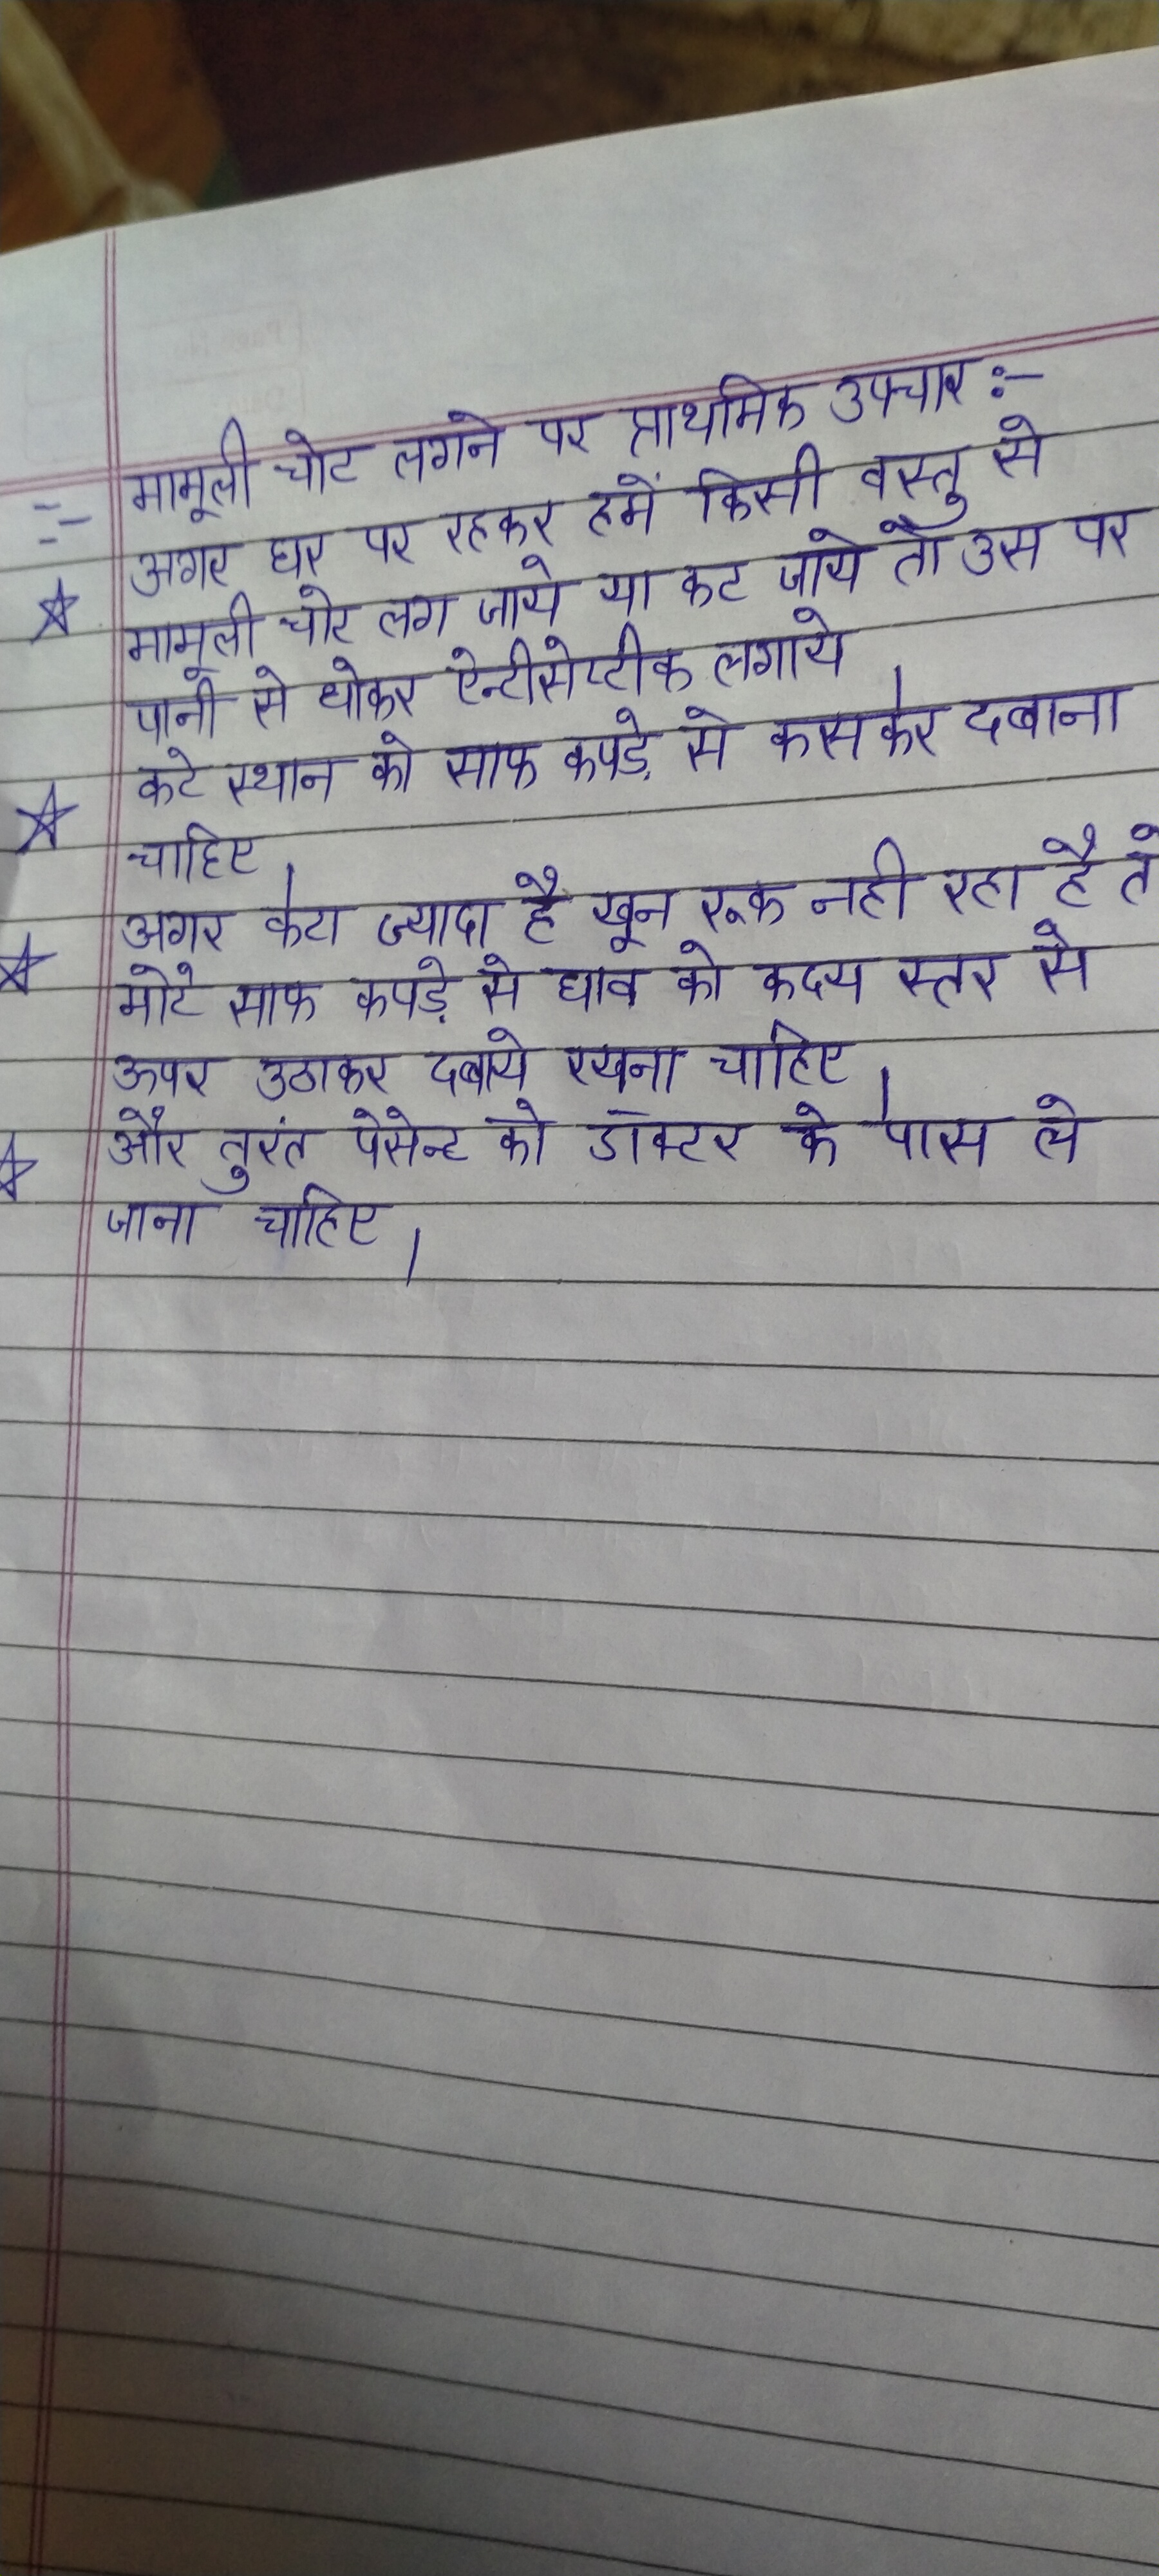 मामूली चोट लगने पर प्राथमिक उपचार :-
अगर घर पर रहकर हमें किसी वस्तु से
मामूली चोर लग जाये या कट जाये तो उस पर
पानी से धोकर ऐन्टीसेप्टीक लगाये ।
कटे स्थान को साफ कपड़े से कसकर दबाना
चाहिए ।
अगर कटा ज्यादा है खून रूक नही रहा है तो
मोटे साफ कपड़े से घाव को स्तर से
ऊपर उठाकर दबाये रखना चाहिए ।
और तुरंत पेसेन्ट को डॉक्टर के पास ले
जाना चाहिए ।